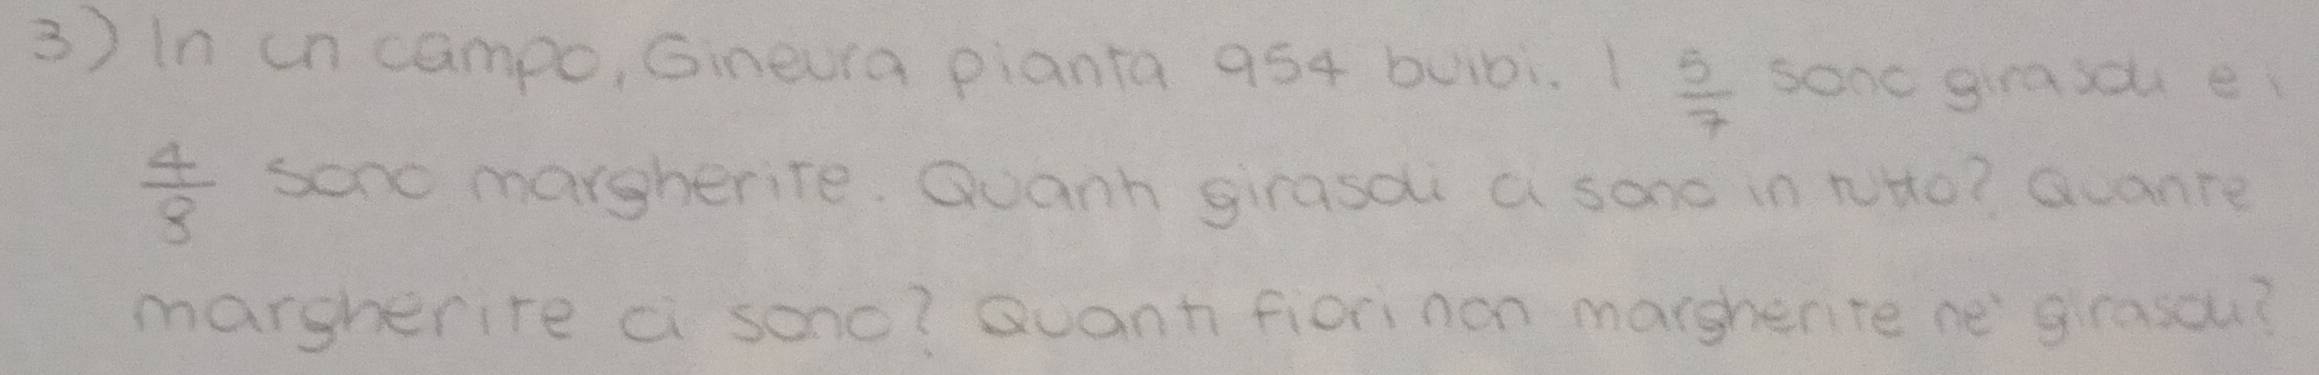 3) In un campo, Ginevra pianta 954 bulbi. I 5/7 sono girasoli e i
4/8 sono margherite. Quanti girasoli ci sono in tutto? Quante
margherite ci sono? Quanti fiori non margherite ne' girasoli?